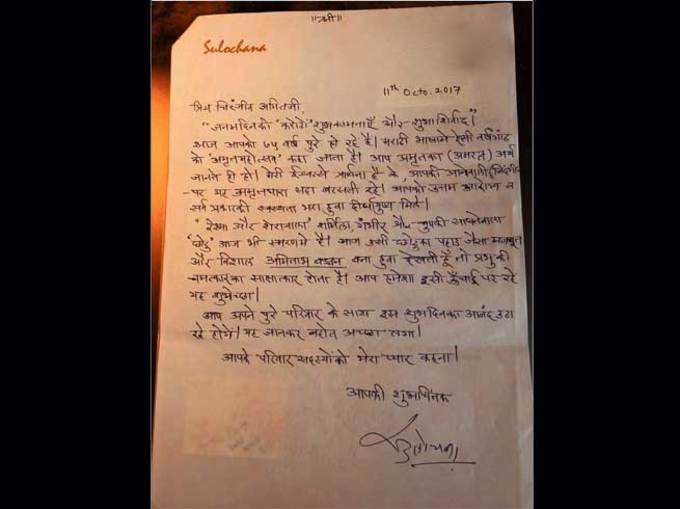 ॥श्री॥
Sulochana
11th Octo. 2017
प्रिय चिरंजीव अमितजी,
"जनमदिनकी 'करोरो' शुभकामनाएँ और शुभाशिर्वाद।"
आज आपको ७५ वर्ष पुरे हो रहे है। मराठी भाषामे ऐसी वर्षगांठ
को 'अमृतमहोत्सव' कहा जाता है। आप अमृतका (अमरत) अर्थ
जानते ही हो। मेरी ईश्वरसे प्रार्थना है के, आपकी
पर यह अमृतधारा सदा बरसती रहे। आपको उत्तम आरोग्य व
सर्व प्रकारकी स्वस्थता भरा हुवा दीर्घायुष्य मिले।
"रेश्मा और शेरावाला" शर्मिला, गंभीर और चुपकी
'छोटु' आज भी स्मरणमे है। आज उसी छोटुका पहाड जैसा मजबूत
और विशाल अमिताभ बच्चन बना हुवा देखती हूँ तो प्रभु की
चमत्कारका साक्षात्कार होता है। आप हमेशा इसी ऊँचाई पर रहे
यह शुभेच्छा।
आप अपने पुरे परिवार के साथ इस शुभदिनका आनंद उठा
रहे होगे। यह जानकर बहोत अच्छा लगा।
आपके परिवार सदस्योंको मेरा प्यार कहना।
आपकी शुभचिंतक
सुलोचना